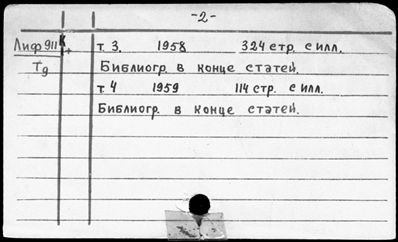 -2-
Лиф911 К+ т. 3. 1958 324 стр. с илл.
Тд Библиогр. в конце статей.
т. 4 1959 114 стр. с илл.
Библиогр. в конце статей.